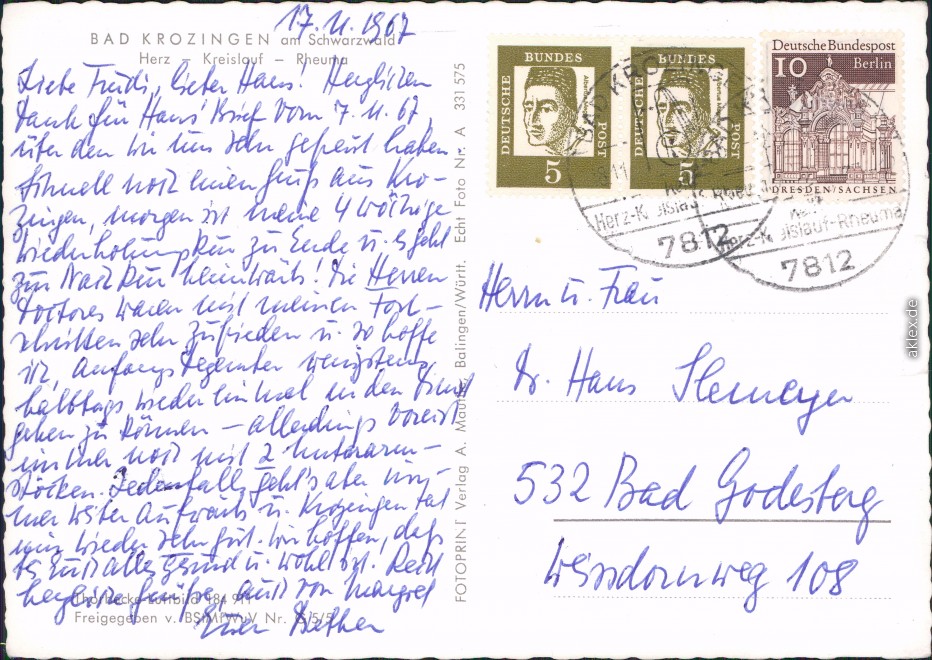 17.11.1967
BAD KROZINGEN am Schwarzwald
Herz – Kreislauf – Rheuma
Liebe Trudi, lieber Hans! Herzlichen
Dank für Hans' Brief vom 7.11.67,
über den wir uns sehr gefreut haben.
Schnell noch einen Gruß aus Kro-
zingen, morgen ist meine 4 wöchige
Wiederholungskur zu Ende u. es geht
zur Nachkur heimwärts! Die Herren
Doctores waren mit meinen Fort-
schritten sehr zufrieden u. so hoffe
ich, Anfangs Dezember wenigstens
halbtags wieder einmal in den Dienst
gehen zu können – allerdings vorerst
immer noch mit 2 Unterarm-
stöcken. Jedenfalls geht's aber im-
mer weiter aufwärts u. Krozingen tat
mir wieder sehr gut. Wir hoffen, daß
es Euch allen gesund u. wohl ist. Recht
herzliche Grüße, auch von Margret
Euer
Thorbecke-Luftbild
Freigegeben v. BStMfWuV Nr. G/5/5
FOTOPRINT Verlag A. Mauthe Balingen/Württ. Echt Foto Nr. A 331 575
DEUTSCHE BUNDES POST
5
DEUTSCHE BUNDES POST
5
Deutsche Bundespost
10 Berlin
DRESDEN/SACHSEN
BAD KROZINGEN
Herz-Kreislauf-Rheuma
7812
Herz-Kreislauf-Rheuma
7812
Herrn u. Frau
Dr. Hans
532 Bad Godesberg
Wendornweg 108
aklex.de